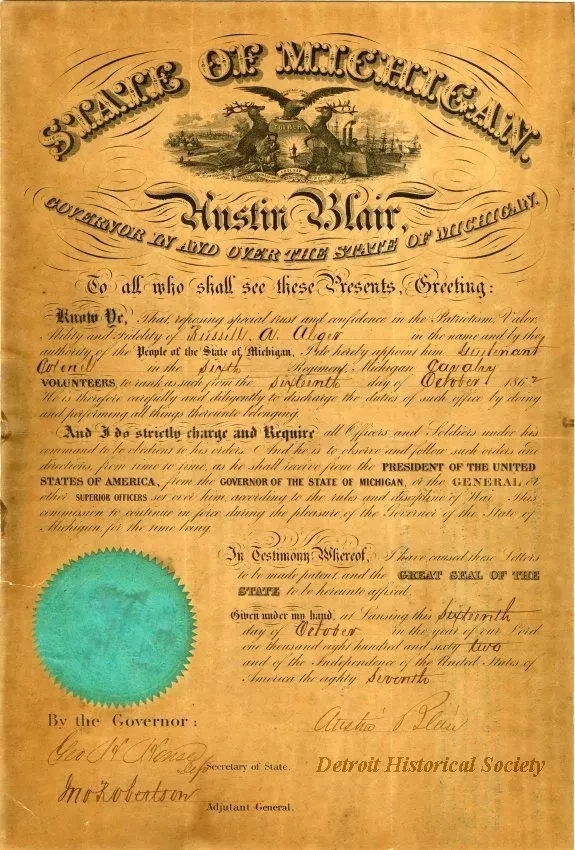 STATE OF MICHIGAN.
TUEBOR
Austin Blair,
GOVERNOR IN AND OVER THE STATE OF MICHIGAN.
To all who shall see these Presents, Greeting:
Know Ye, That, reposing special trust and confidence in the Patriotism, Valor,
Ability and Fidelity of Russell A. Alger in the name and by the
authority of the People of the State of Michigan, I do hereby appoint him Lieutenant
Colonel in the Sixth Regiment, Michigan Cavalry
VOLUNTEERS to rank as such from the Sixteenth day of October 1862
He is therefore carefully and diligently to discharge the duties of such office by doing
and performing all things thereunto belonging.
And I do strictly charge and Require all Officers and Soldiers under his
command to be obedient to his orders. And he is to observe and follow such orders and
directions, from time to time, as he shall receive from the PRESIDENT OF THE UNITED
STATES OF AMERICA, from the GOVERNOR OF THE STATE OF MICHIGAN, or the GENERAL or
other SUPERIOR OFFICERS set over him, according to the rules and discipline of War. This
commission to continue in force during the pleasure of the Governor of the State of
Michigan, for the time being.
In Testimony Whereof, I have caused these Letters
to be made patent, and the GREAT SEAL OF THE
STATE to be hereunto affixed.
Given under my hand, at Lansing this Sixteenth
day of October in the year of our Lord
one thousand eight hundred and sixty two
and of the Independence of the United States of
America the eighty Seventh
By the Governor:
Austin Blair
Geo H House
Dep Secretary of State.
Jno Robertson
Adjutant General.
Detroit Historical Society